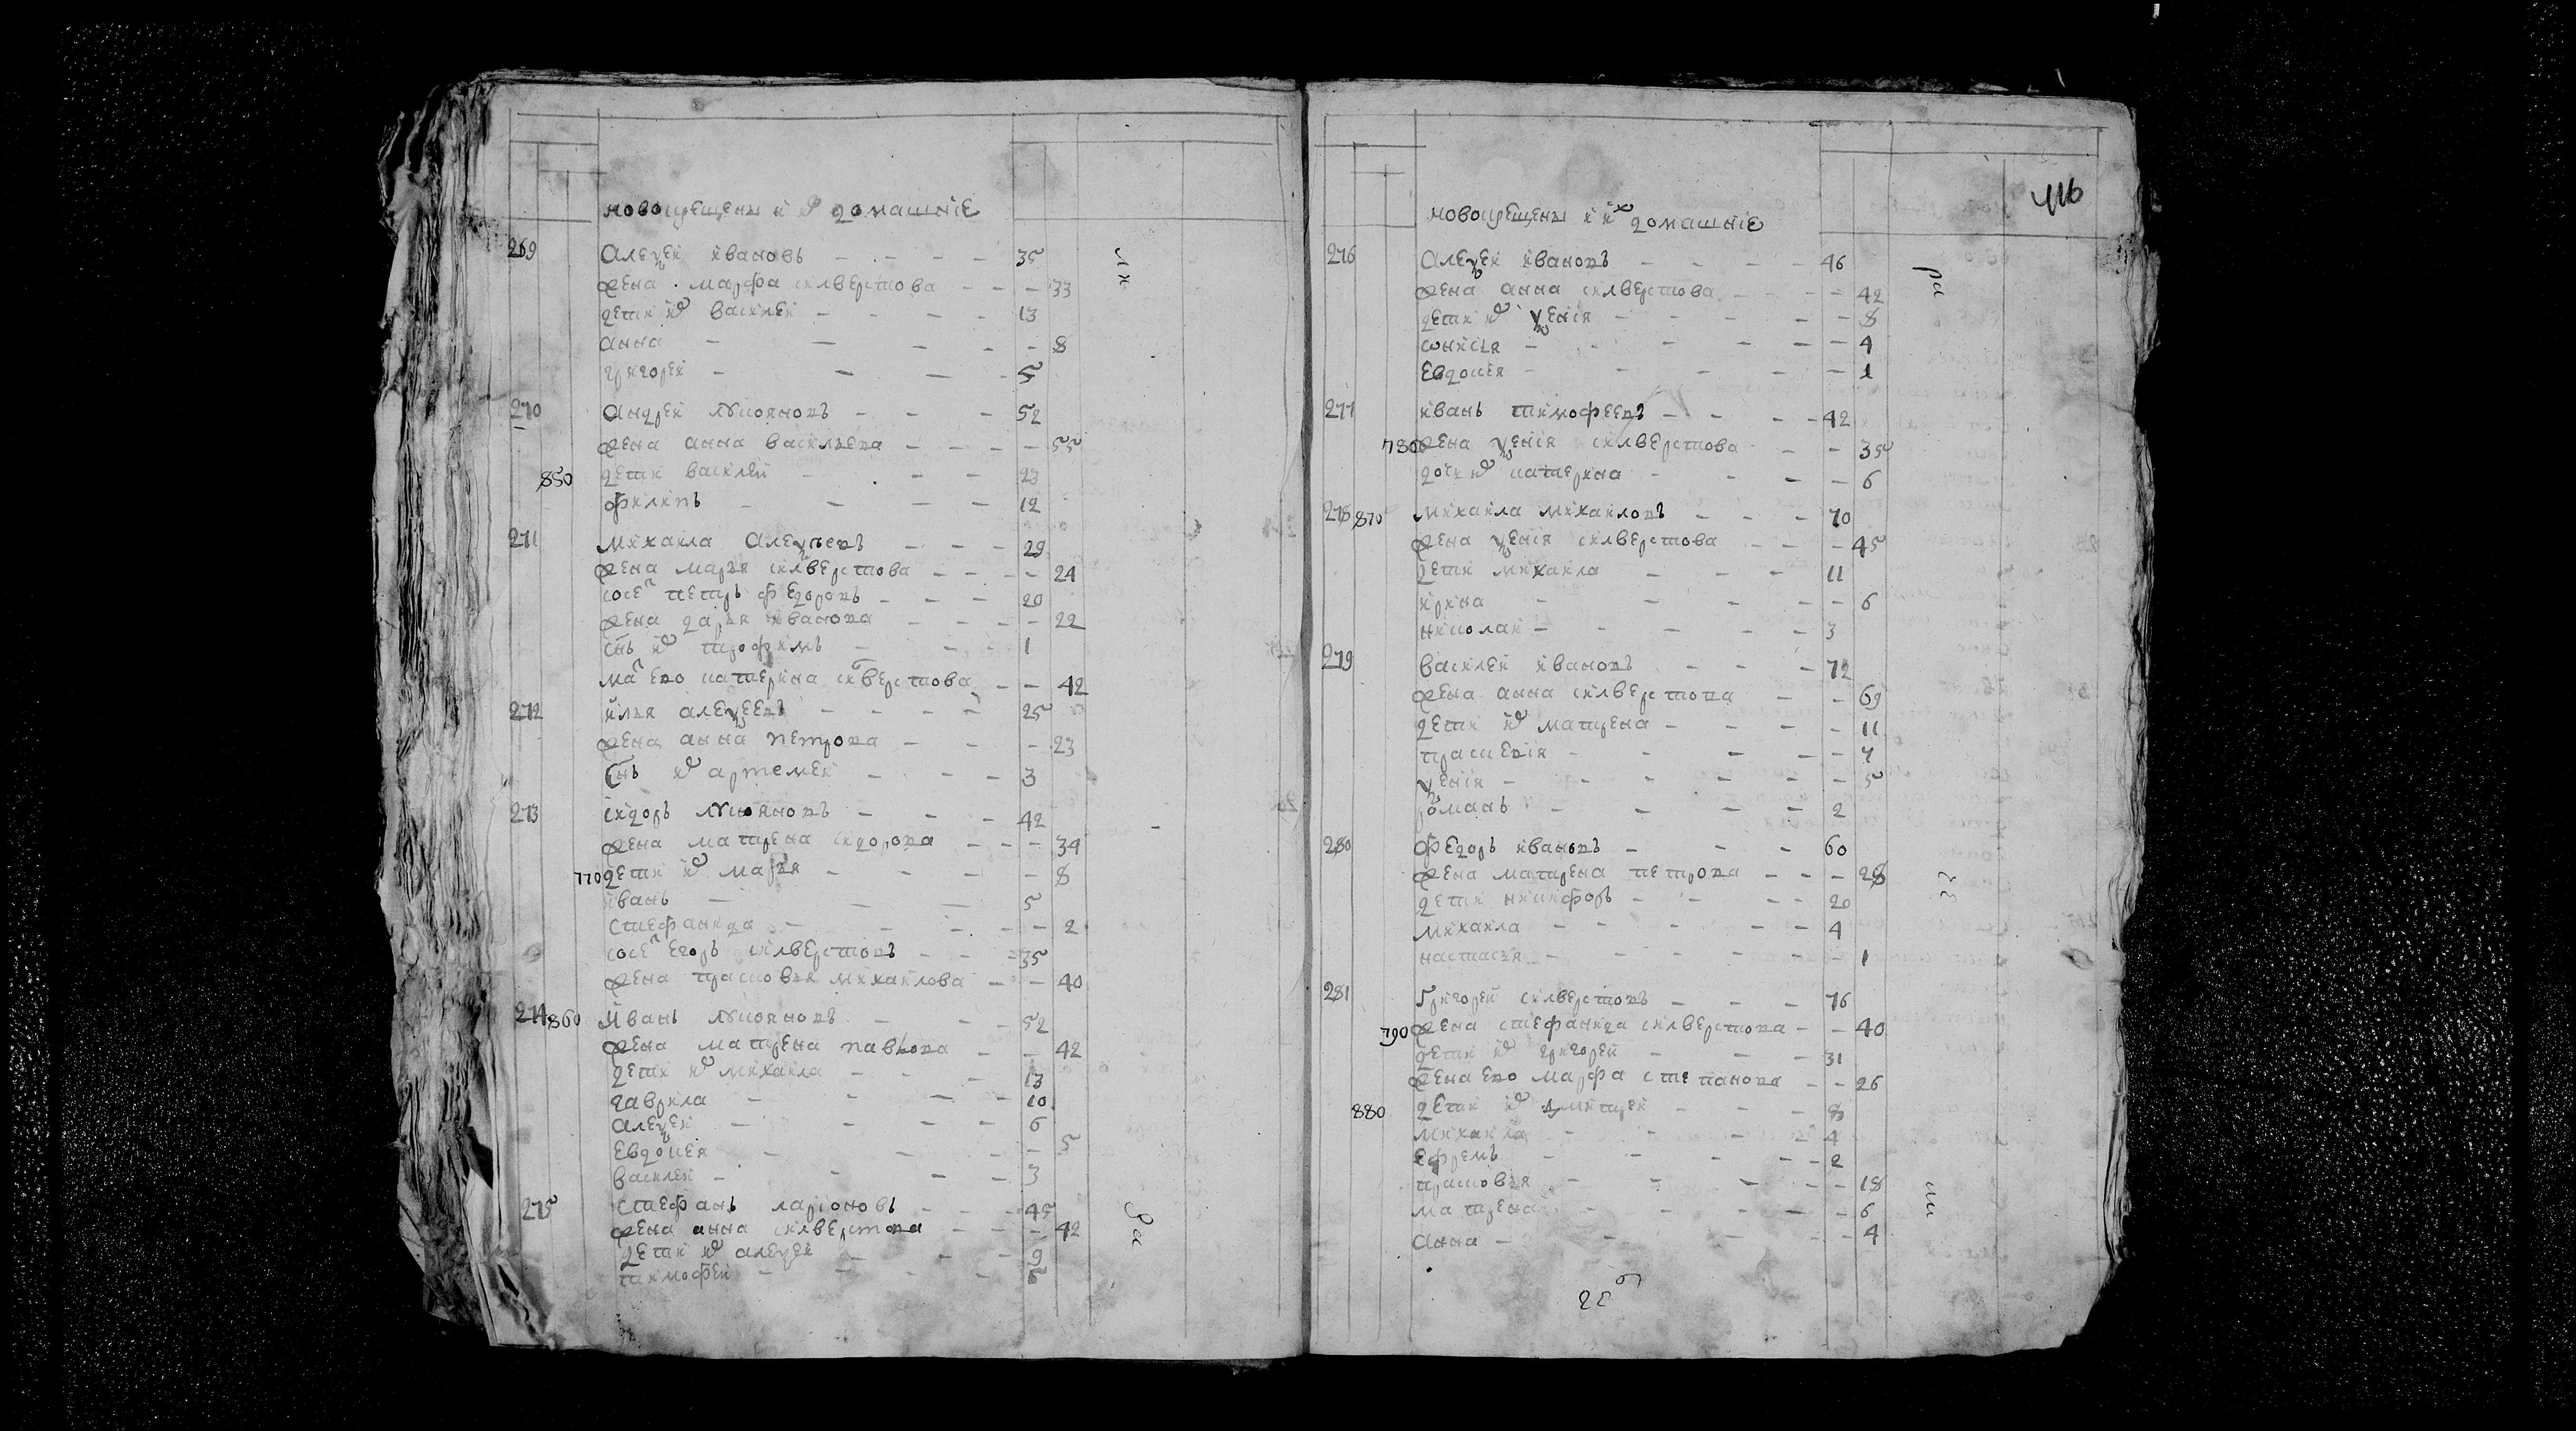 новокрещены и их домашние
269 Алеѯеи ивановъ 35
жена марфа силверстова 33
дети их василеи 13
анна 8
григореи 5
270 Андреи лукояновъ 52
жена анна василева 55
850 дети василеи 23
филипъ 12
271 михаила Алеѯѣевъ 29
жена маръя силверстова 24
сосед петръ федоровъ 20
жена даръя иванова 22
снъ их трофимъ 1
мать ево катерина силверстова 42
272 илья алеѯеевъ 25
жена анна петрова 23
снъ их артемеи 3
273 сидоръ лукояновъ 42
жена матрена сидорова 34
770 дети их маръя 8
иванъ 5
стефанида 2
сосед егоръ силверстовъ 35
жена прасковья михаилова 40
274 860 иванъ лукояновъ 52
жена матрена павлова 42
дети их михаила 13
гаврила 10
алеѯеи 6
евдокея 5
василеи 3
275 стефанъ ларионовъ 45
жена анна силверстова 42
дети их алеѯеи 9
тимофеи 5
новокрещены и их домашние
276 Алеѯеи ивановъ 46
жена анна силверстова 42
дети их ѯения 8
ѡнисья 4
евдокея 1
277 иванъ тимофеевъ 42
780 жена ѯения силверстова 35
дочь их катерина 6
278 870 михаила михаиловъ 70
жена ѯения силверстова 45
дети михаила 11
ирина 6
николаи 3
279 василеи ивановъ 72
жена анна силверстова 69
дети их матрена 11
праскевия 7
ѯения 5
романъ 2
280 федоръ ивановъ 60
жена матрена петрова 28
дети никифоръ 20
михаила 4
настасъя 1
281 Григореи силверстовъ 76
790 жена стефанида силверстова 40
дети их григореи 31
жена ево марфа степанова 26
880 дети их дмитреи 8
михаила 4
ефремъ 2
прасковъя 18
матрена 6
анна 4